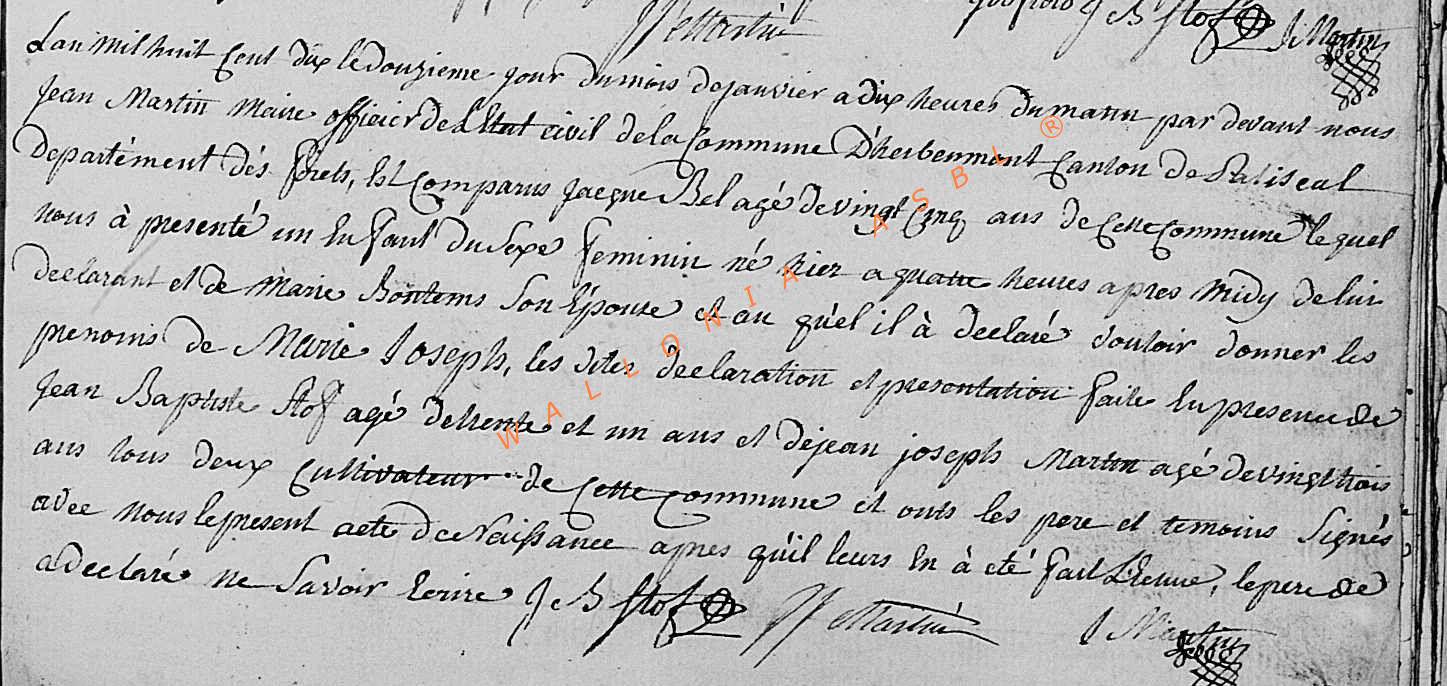 JJ Martin J B Stof J Martin
Lan mil huit Cent dix le douzieme jour du mois de janvier a dix heures du matin par devant nous
Jean Martin Maire officier de L'Etat civil de la Commune D'herbeumont Canton de Paliseul
Departément dés forets, Est Comparus Jacque Bel agé de vingt Cinq ans de Cette Commune lequel
nous à presenté un Enfant du Sexe Feminin né hier a quatre heures apres Midy de lui
declarant et de Marie Bontems Son Epouse et au quel il à declaré vouloir donner les
prenoms de Marie Joseph, les dites declaration et presentation faite En presence de
Jean Baptiste Stof agé de trente et un ans et de jean joseph Martin agé de vingt trois
ans tous deux Cultivateur de Cette Commune et onts les pere et temoins Signés
avec nous le present acte de Naissance apres qu'il leurs En à été fait Lecture, le pere de
a declaré ne Savoir Ecrire J B Stof JJ Martin J Martin
WALLONIA ASBL ®